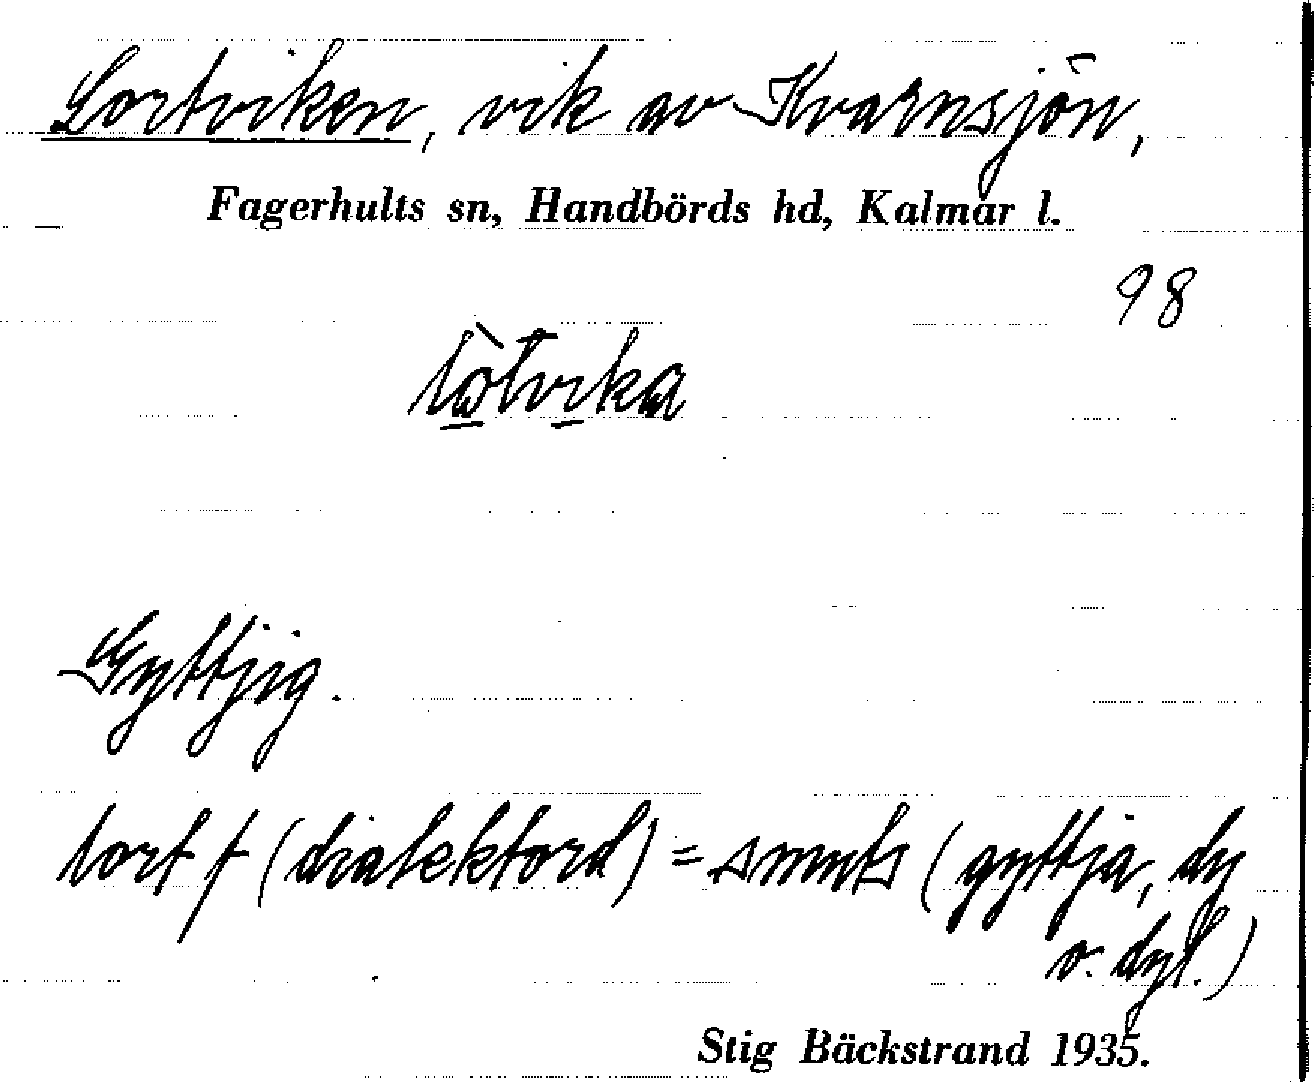 Lortviken, vik av Kvarnsjön,
Fagerhults sn, Handbörds hd, Kalmar l.
98
Gyttjig.
lort f (dialektord) = smuts (gyttja, dy
o. dyl.)
Stig Bäckstrand 1935.